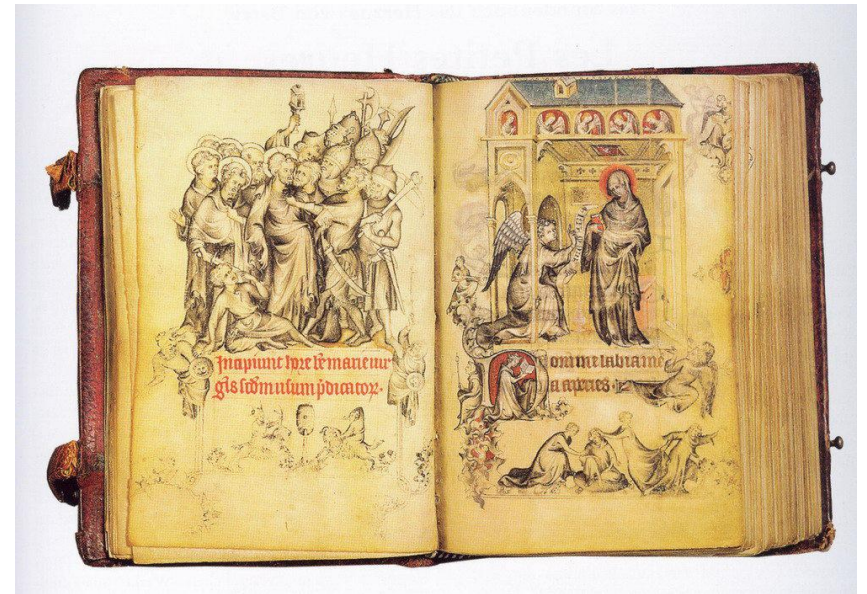 Incipiunt hore bē marie uir
gīs scđm usum p̄dicatoꝝ.
Domine labia me
a aperies.